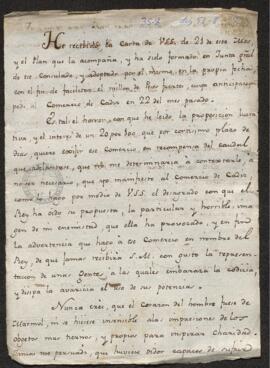 He recibido la Carta de VSS. de 21 de este Mes
y el Plan que la acompaña, y ha sido formado en Junta gral
de ese Consulado, y adoptado por el mismo, en la propia fecha
con el fin de facilitar el millon de Pesos fuertes, cuya anticipacion
pedi al Comercio de Cadiz en 22 del mes pasado.
Es tal el horror, con que he leido la proposicion
y el interes de un 20 por 100, que por cortisimo plazo de
dias, quiere exigir ese Comercio, en recompensa del caudal
que adelantare, que no me determinaria a contextarla a
no ser necesario, que yo manifieste al Comercio de Cadiz
como lo hago por medio de VSS. el desagrado con que el
Rey ha oido su propuesta, la particular y horrible
de enemistad, que ella ha provocado, y en fin
la advertencia que hago a ese Comercio en nombre del
Rey, de que jamas recibirá S.M. con gusto la representacion
de una Gente, a las quales embarara la codicia,
y disipa la avaricia el uso de sus potencias.
Nunca crei, que el Corazon del hombre fuese de
Marmol, ni se hiciese insensible a las impresiones de los
objetos mas tiernos, y propios para inspirar Charidad.
Jamas me persuadi, que huviese oidos capaces de sufrir